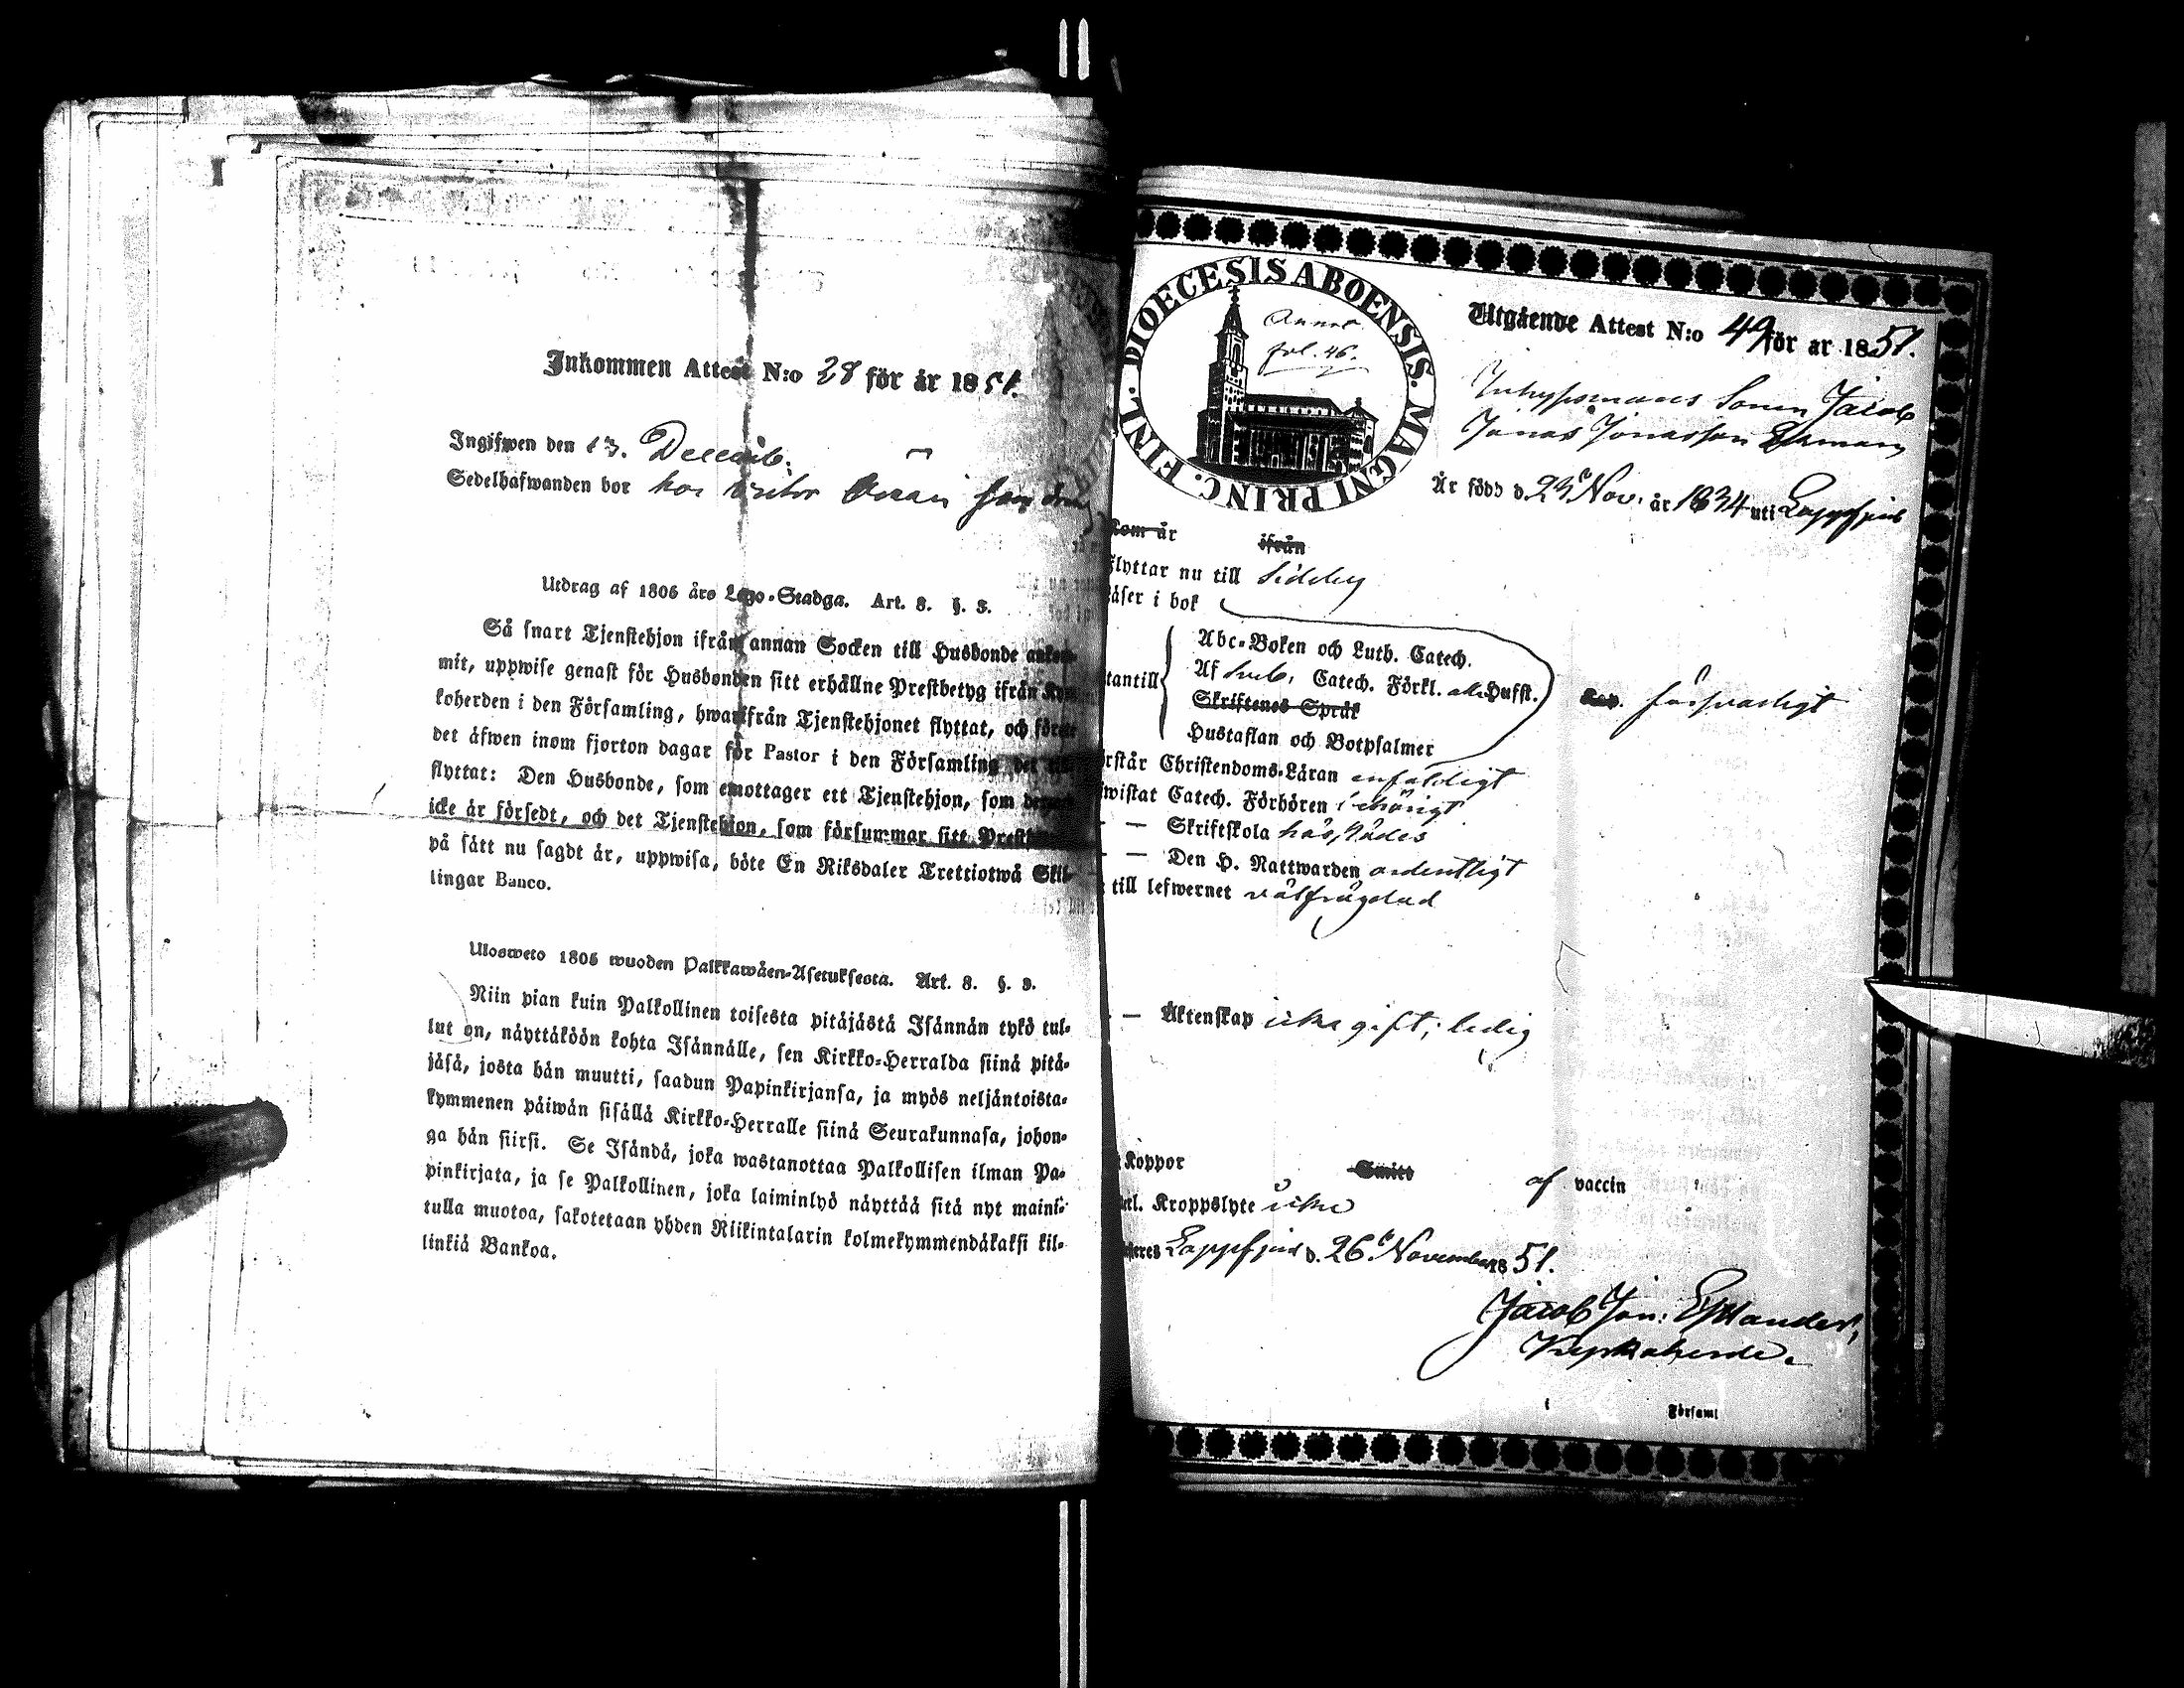 Inkommen Attest N:o 28 för år 1851.
Ingifwen den 13. Decemb.
Sedelhafwanden bor hos
Utdrag af 1805 års Lego-Stadga. Art. 8. §. 3.
Så snart Tjenstehjon ifrån annan Socken till Husbonde ankom-
mit, uppwise genast för Husbonden sitt erhållne Prestbetyg ifrån Kyr-
koherden i den Församling, hwarifrån Tjenstehjonet flyttat, och förete
det äfwen inom fjorton dagar för Pastor i den Församling det till
flyttat: Den Husbonde, som emottager ett Tjenstehjon, som dermed
icke är försedt, och det Tjenstehjon, som försummar sitt
på sätt nu sagdt är, uppwisa, böte En Riksdaler Trettiotwå Skil-
lingar Banco.
Ulosweto 1805 wuoden Palkkawäen-Asetuksesta. Art. 8. §. 3.
Niin pian kuin Palkollinen toisesta pitäjästä Isännän tykö tul-
lut on, näyttäköön kohta Isännälle, sen Kirkko-Herralda siinä pitä-
jäsä, josta hän muutti, saadun Papinkirjansa, ja myös neljäntoista-
kymmenen päiwän sisällä Kirkko-Herralle siinä Seurakunnasa, johon-
ga hän siirsi. Se Isändä, joka wastanottaa Palkollisen ilman Pa-
pinkirjata, ja se Palkollinen, joka laiminlyö näyttää sitä nyt maini-
tulla muotoa, sakotetaan yhden Riikintalarin kolmekymmendäkaksi kil-
linkiä Bankoa.
FINL. DIOECESIS ABOENSIS. MAGNI PRINC.
Annot.
fol. 46.
Utgående Attest N:o 49 för år 1851.
Inhysesmans Sonen Jacob
Jonas Jonasson
Är född d. 23 Nov. år 1834 uti Lappfjerd
Kom år ifrån
flyttar nu till Sideby
Läser i bok
Abc-Boken och Luth. Catech.
utantill Af Sveb. Catech. Förkl. Husfl. försvarligt
Skriftenes Språk
Hustaflan och Botpsalmer
Förstår Christendoms-Läran enfaldigt
Bewistat Catech. Förhören behörigt
— Skriftskola härstädes
— Den H. Nattwarden ordentligt
till lefwernet välfrägdad
— Äktenskap icke gift; ledig
Koppor af vaccin
Kroppslyte icke
Lappfjerd d. 26 November 1851.
Jacob Jon: Estlander,
Kyrkoherde.
Församl